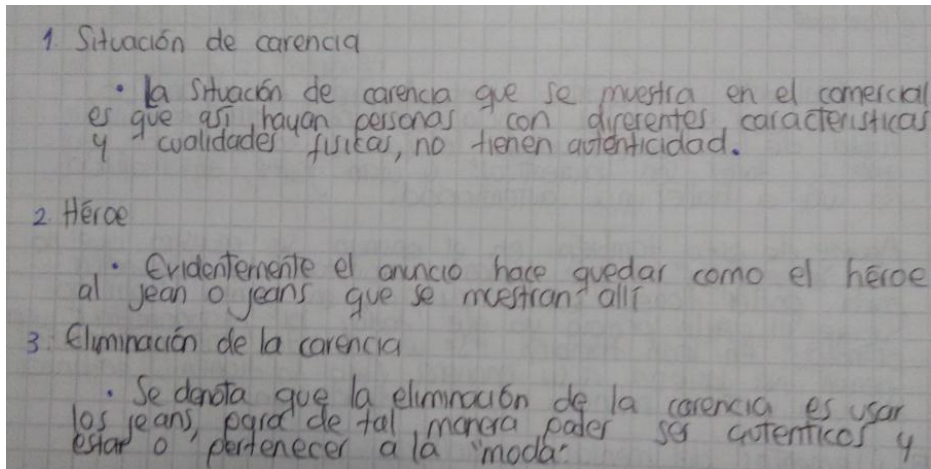 1. Situación de carencia
• la situación de carencia que se muestra en el comercial
es que así hayan personas con diferentes características
y cualidades físicas, no tienen autenticidad.
2. Héroe
• Evidentemente el anuncio hace quedar como el héroe
al jean o jeans que se muestran allí
3. Eliminación de la carencia
• Se denota que la eliminación de la carencia es usar
los jeans, para de tal manera poder ser autenticos y
estar o pertenecer a la "moda".